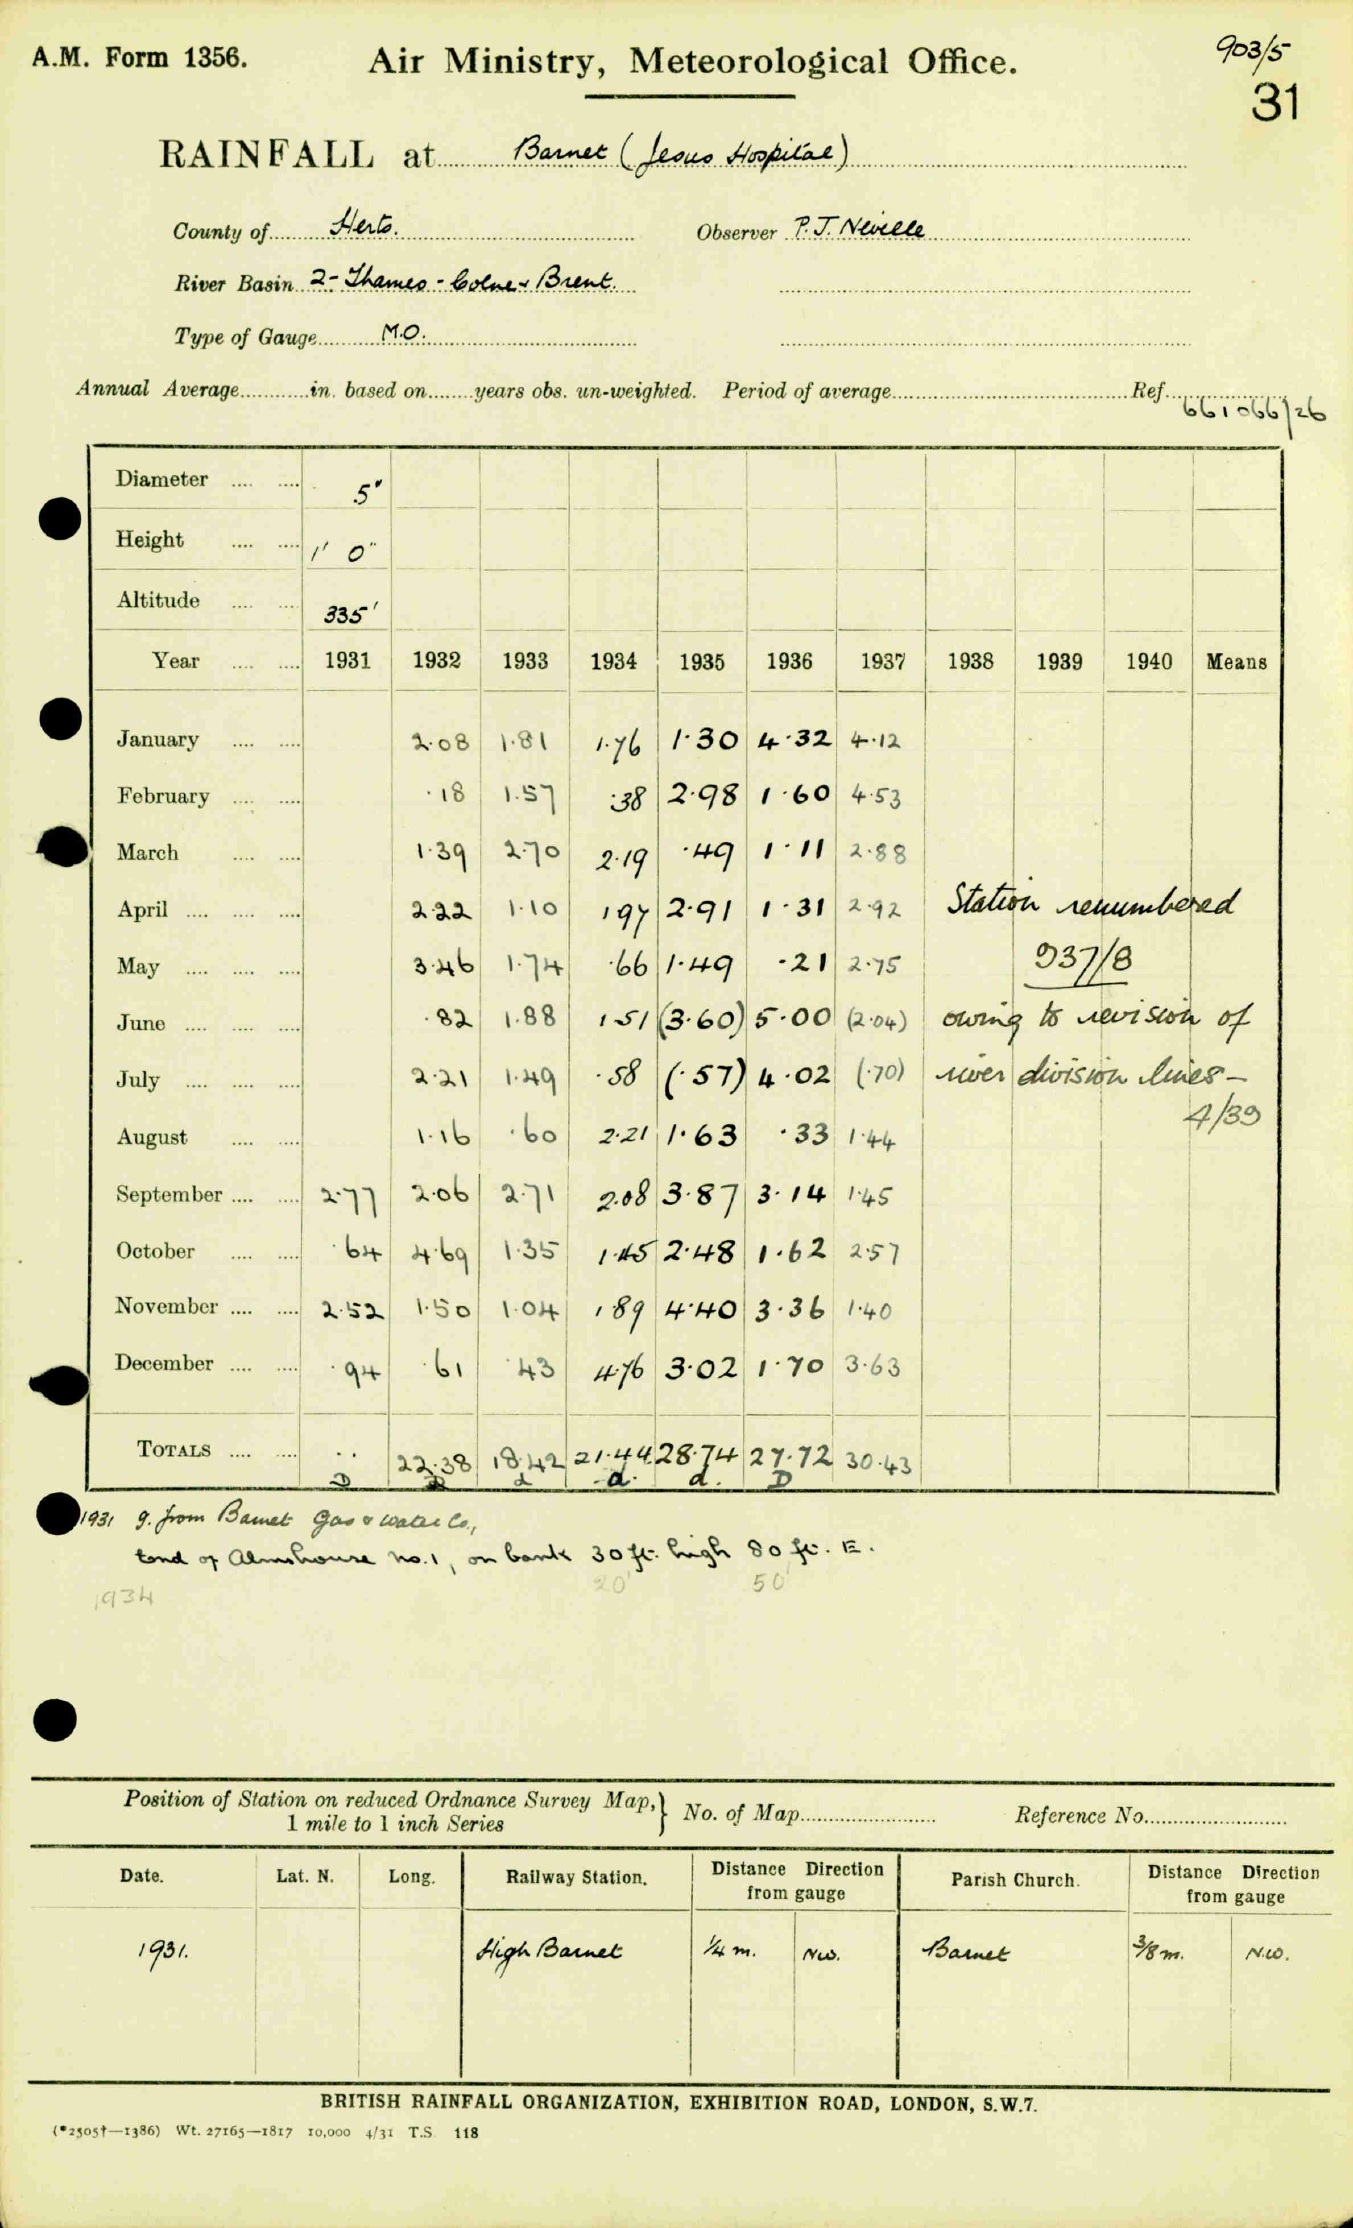 A.M. Form 1356. Air Ministry, Meteorological Office. 903/5
31
RAINFALL at Barnet (Jesus Hospital)
County of Herts. Observer P.J. Neville
River Basin 2- Thames - Colne & Brent.
Type of Gauge M.O.
Annual Average in. based on years obs. un-weighted. Period of average Ref. 661066/26
Diameter 5"
Height 1' 0"
Altitude 335'
Year 1931 1932 1933 1934 1935 1936 1937 1938 1939 1940 Means
January 2.08 1.81 1.76 1.30 4.32 4.12
February .18 1.57 .38 2.98 1.60 4.53
March 1.39 2.70 2.19 .49 1.11 2.88
April 2.22 1.10 1.97 2.91 1.31 2.92 Station renumbered
May 3.46 1.74 .66 1.49 .21 2.75 937/8
June .82 1.88 1.51 (3.60) 5.00 (2.04) owing to revision of
July 2.21 1.49 .58 (.57) 4.02 (.70) river division lines -
August 1.16 .60 2.21 1.63 .33 1.44 4/39
September 2.77 2.06 2.71 2.08 3.87 3.14 1.45
October .64 4.69 1.35 1.45 2.48 1.62 2.57
November 2.52 1.50 1.04 1.89 4.40 3.36 1.40
December .94 .61 .43 4.76 3.02 1.70 3.63
TOTALS .. 22.38 18.42 21.44 28.74 27.72 30.43
D D d d. d. D
1931 g. from Barnet Gas & Water Co.,
to end of Almshouse No. 1, on bank 30 ft. high 80 ft. E.
1934 20' 50'
Position of Station on reduced Ordnance Survey Map,} No. of Map Reference No.
1 mile to 1 inch Series
Date. Lat. N. Long. Railway Station. Distance Direction from gauge Parish Church. Distance Direction from gauge
1931. High Barnet 1/4 m. NW. Barnet 3/8 m. N.W.
BRITISH RAINFALL ORGANIZATION, EXHIBITION ROAD, LONDON, S.W.7.
(*2505†—1386) Wt. 27165—1817 10,000 4/31 T.S. 118